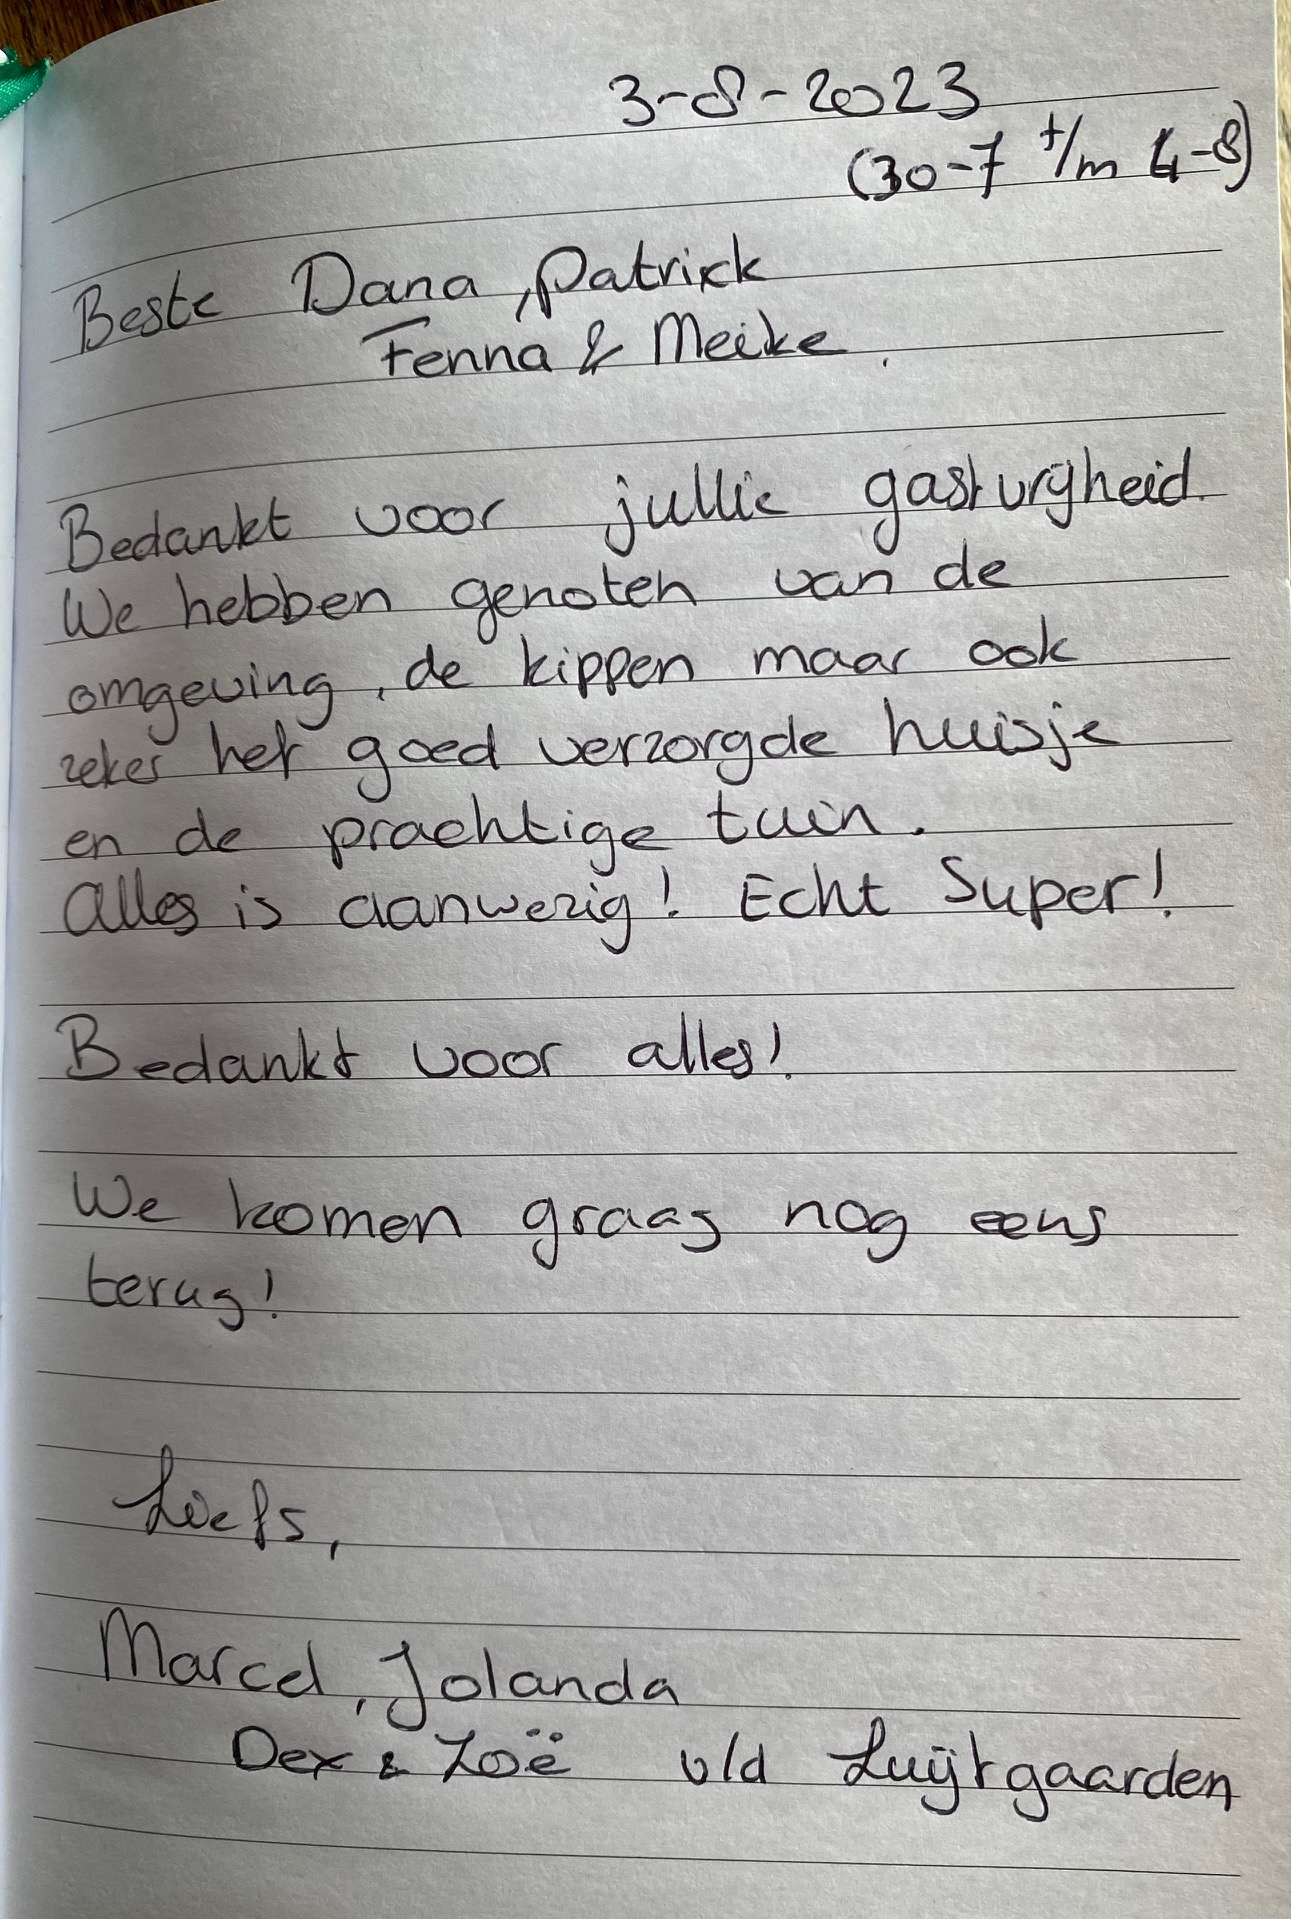 3-8-2023
(30-7 t/m 4-8)
Beste Dana, Patrick
Fenna & Meike.
Bedankt voor jullie gastvrijheid.
We hebben genoten van de
omgeving, de kippen maar ook
zeker het goed verzorgde huisje
en de prachtige tuin.
Alles is aanwezig! Echt Super!
Bedankt voor alles!
We komen graag nog eens
terug!
Liefs,
Marcel, Jolanda
Dex & Zoë v/d Luijtgaarden